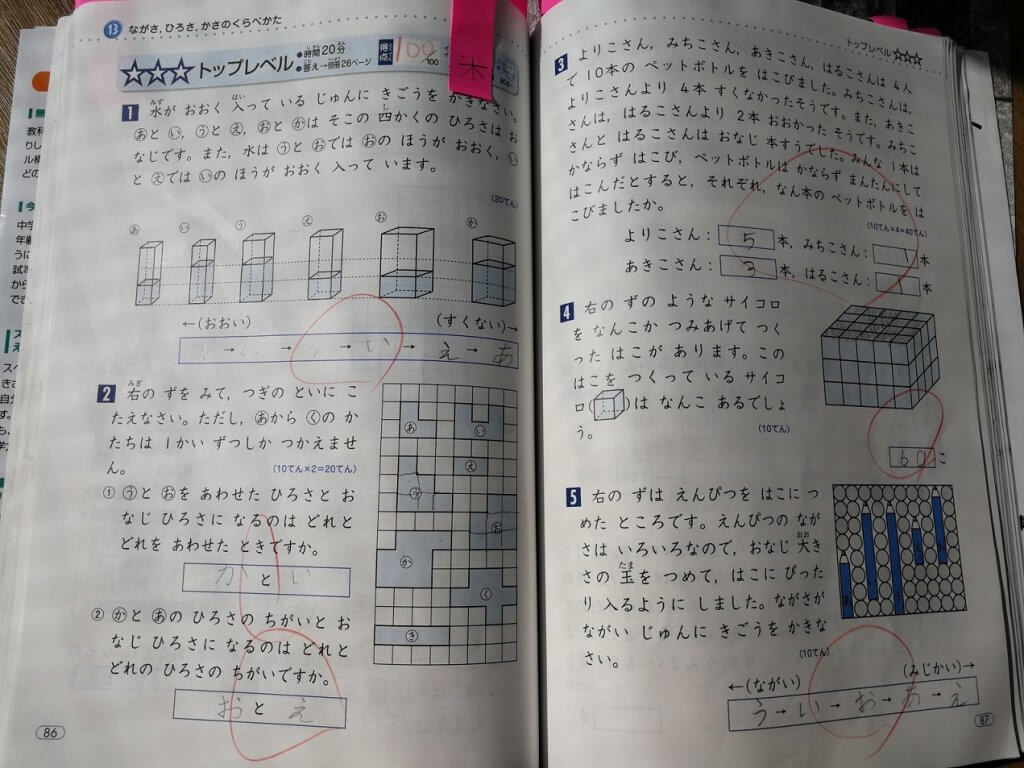 13 ながさ,ひろさ,かさのくらべかた
☆☆☆トップレベル
●時間20分
●答え→別冊26ページ
得点
100
/100
1 水が おおく 入って いる じゅんに きごうを かきなさい。
あと い,うと え,おと かは そこの 四かくの ひろさは お
なじです。また,水は うと おでは おの ほうが おおく,い
と えでは いの ほうが おおく 入って います。
(20てん)
あ い う え お か
←(おおい) (すくない)→
→ → → い → え → あ
2 右の ずを みて,つぎの といに こ
たえなさい。ただし,あから くの か
たちは 1かい ずつしか つかえませ
ん。 (10てん×2=20てん)
① うと おを あわせた ひろさと お
なじ ひろさに なるのは どれと
どれを あわせた ときですか。
か と い
② かと あの ひろさの ちがいと お
なじ ひろさに なるのは どれと
どれの ひろさの ちがいですか。
お と え
あ い
え
う
お
か
く
き
86
トップレベル☆☆☆
3 よりこさん,みちこさん,あきこさん,はるこさんは 4人
で 10本の ペットボトルを はこびました。みちこさんは,
よりこさんより 4本 すくなかったそうです。また,あきこ
さんは,はるこさんより 2本 おおかった そうです。みちこ
さんと はるこさんは おなじ 本すうでした。みんな 1本は
かならず はこび,ペットボトルは かならず まんたんにして
はこんだとすると,それぞれ,なん本の ペットボトルを は
こびましたか。
(10てん×4=40てん)
よりこさん: 5 本,みちこさん: 1 本
あきこさん: 3 本,はるこさん: 1 本
4 右の ずの ような サイコロ
を なんこか つみあげて つく
った はこが あります。この
はこを つくって いる サイコ
ロ( )は なんこ あるでしょ
う。 (10てん)
60 こ
5 右の ずは えんぴつを はこに つ
めた ところです。えんぴつの なが
さは いろいろなので,おなじ 大き
さの 玉を つめて,はこに ぴった
り 入るように しました。ながさが
ながい じゅんに きごうを かきな
さい。 (10てん)
←(ながい) (みじかい)→
う → い → お → あ → え
87